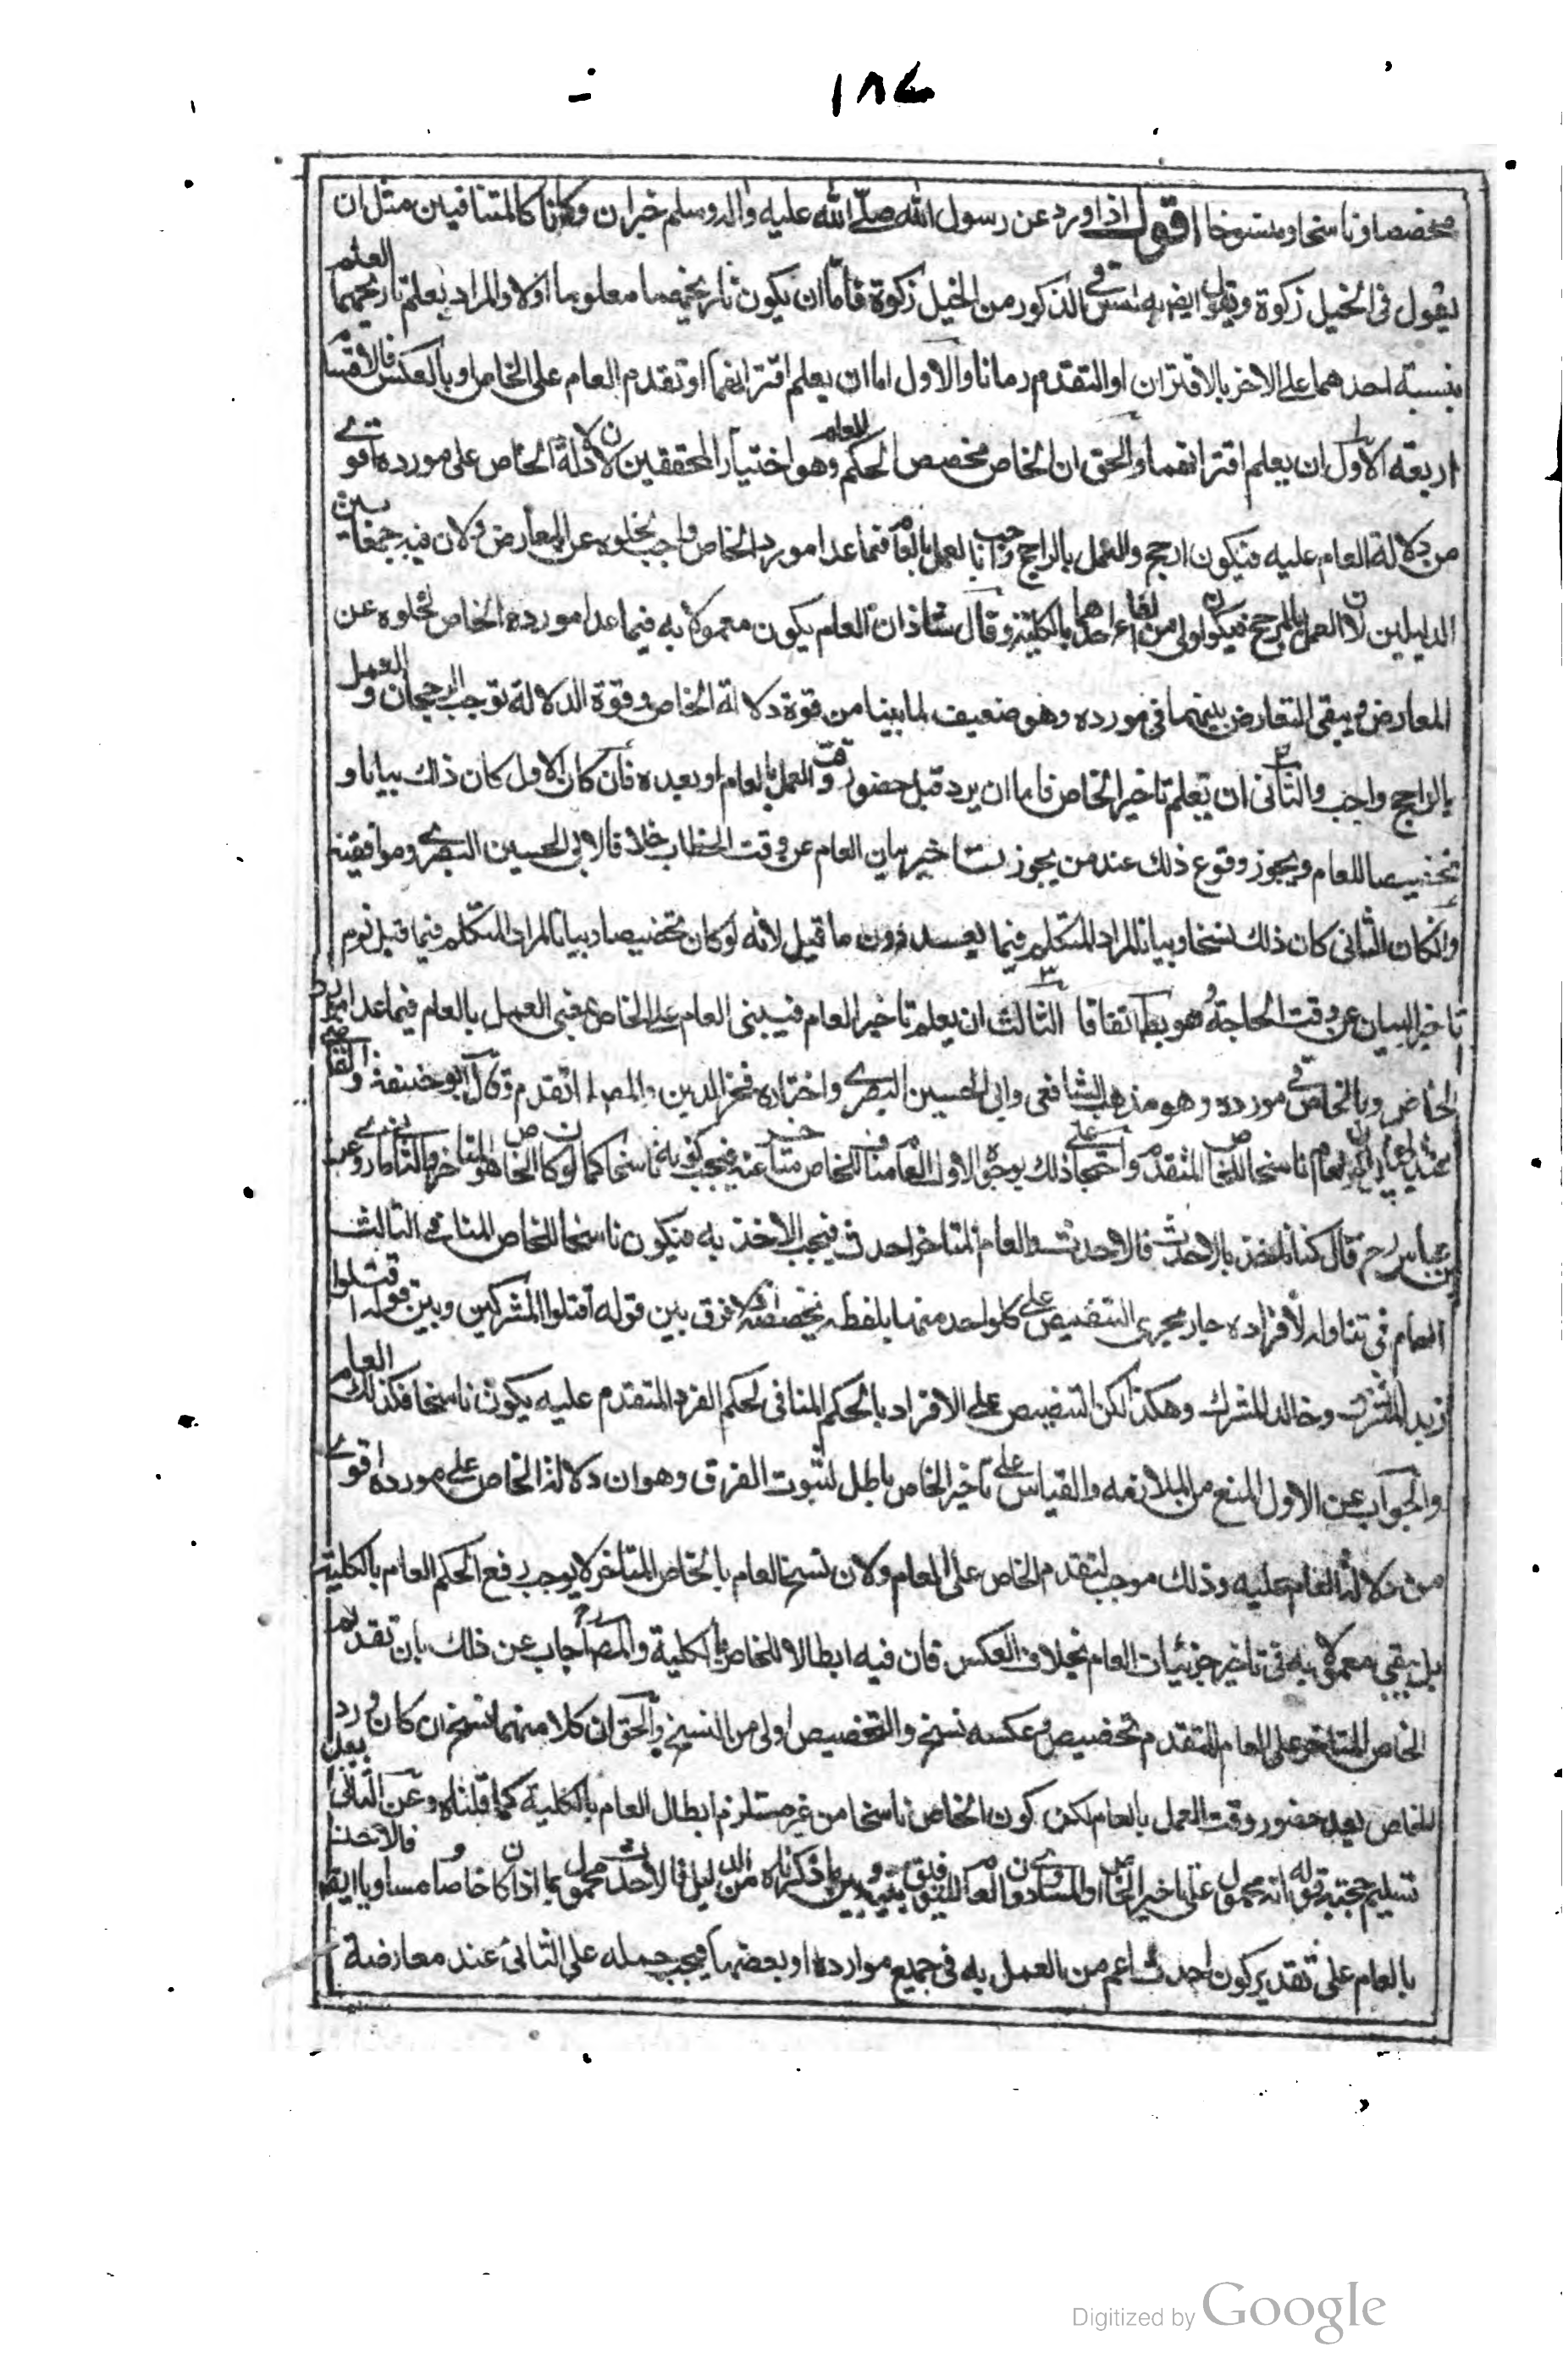 ١٨٤
مخصصا وناسخا ومنسوخا اقول اذا ورد عن رسول الله صلى الله عليه واله وسلم خبران وكانا كالمتنافيين مثل ان
يقول فى الخيل زكوة ويقول ايضا ليس فى الذكور من الخيل زكوة فاما ان يكون تاريخهما معلوما اولا والمراد بعلم تاريخهما العلم
بنسبة احدهما على الاخر بالاقتران او التقدم زمانا والاول اما ان يعلم اقترانهما او تقدم العام على الخاص او بالعكس فالاقسام
اربعة الاول ان يعلم اقترانهما والحق ان الخاص مخصص للعام الحكم وهو اختيار المحققين لان دلالة الخاص على مورده اقوى
من دلالة العام عليه فيكون ارجح والعمل بالراجح واجب والعمل بالعام فيما عدا مورد الخاص واجب لخلوه عن المعارض ولان فيه جمعا بين
الدليلين لان العمل بالمرجح فيكون اولى من الغاء احدهما بالكلية وقال شاذ ان العام يكون معمولا به فيما عدا مورده الخاص لخلوه عن
المعارض ويبقى التعارض بينهما فى مورده وهو ضعيف لما بينا من قوة دلالة الخاص وقوة الدلالة توجب الرجحان والعمل
بالراجح واجب والثانى ان يعلم تاخير الخاص فاما ان يرد قبل حضور وقت العمل بالعام او بعده فان كان الاول كان ذلك بيانا و
تخصيصا للعام ويجوز وقوع ذلك عند من يجوز تاخير بيان العام عن وقت الخطاب خلافا لابى الحسين البصرى وموافقيه
وانكان الثانى كان ذلك نسخا وبيانا لمراد المتكلم فيما بعد دون ما قبل لانه لو كان تخصيصا وبيانا لمراد المتكلم فيما قبل لزم
تاخير البيان عن وقت الحاجة وهو بط اتفاقا الثالث ان يعلم تاخير العام فيبنى العام على الخاص فبقى العمل بالعام فيما عدا مورد
الخاص وبالخاص فى مورده وهو مذهب الشافعى وابى الحسين البصرى واختاره فخر الدين والمص لما تقدم وقال ابو حنيفة والقاضى
عبد الجبار يكون العام ناسخا للخاص المتقدم واحتجا على ذلك بوجوه الاول العام مناف للخاص متاخر عنه فيجب كونه ناسخا كما لو كان الخاص هو المتاخر والثانى ما روى عن
ابن عباس رح قال كنا ناخذ بالاحدث فالاحدث والعام المتاخر احدث فيجب الاخذ به فيكون ناسخا للخاص المنافى الثالث
العام فى تناوله لافراده جار مجرى التنصيص على كل واحد منها بلفظه يخصصه اذ لا فرق بين قوله اقتلوا المشركين وبين قوله اقتلوا
زيد المشرك وخالد المشرك وهكذا لكن التنصيص على الافراد بالحكم المنافى لحكم الفرد المتقدم عليه يكون ناسخا فكذلك العام
والجواب عن الاول المنع من الملازمة والقياس على تاخير الخاص باطل لثبوت الفرق وهو ان دلالة الخاص على مورده اقوى
من دلالة العام عليه وذلك موجب لتقدم الخاص على العام ولان نسخ العام بالخاص المتاخر لا يوجب رفع الحكم العام بالكلية
بل يبقى معمولا به فى تاخير جزئيات العام بخلاف العكس فان فيه ابطالا للخاص بالكلية والمص رح اجاب عن ذلك بان تقديم
الخاص المتاخر على العام المتقدم تخصيص وعكسه نسخ والتخصيص اولى من النسخ والحق ان كلا منهما نسخ ان كان ورد
الخاص بعد حضور وقت العمل بالعام لكن كون الخاص ناسخا من غير مستلزم ابطال العام بالكلية كما قلناه وعن الثانى بعد
تسليم حجية قوله انه محمول على تاخير الخاص او المساوى دون العام للتوفيق بينه وبين ما ذكرناه من الدليل فالاحدث محمول بما اذا كان خاصا ومساويا ايضا فالاخذ
بالعام على تقدير كون احدث اعم من العمل به فى جميع موارده او بعضها فيجب حمله على الثانى عند معارضة
Digitized by Google